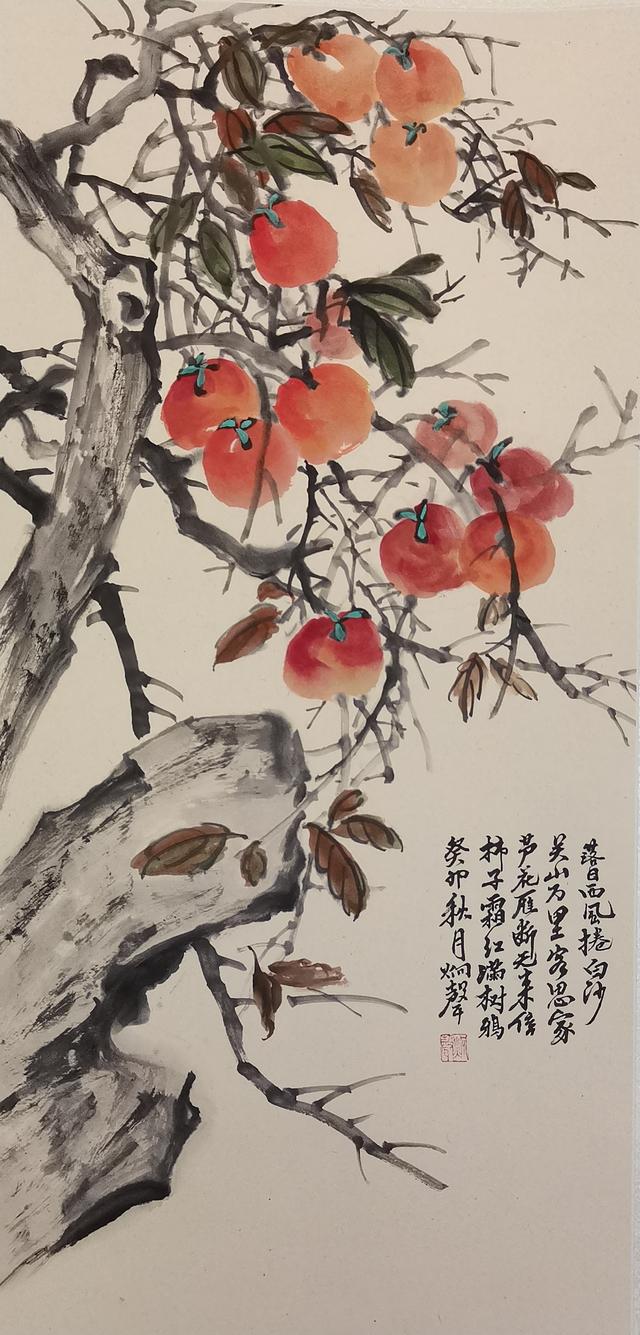 落日西风捲白沙
关山万里客思家
芦花雁断无来信
柿子霜红满树鸦
癸卯秋月炯声